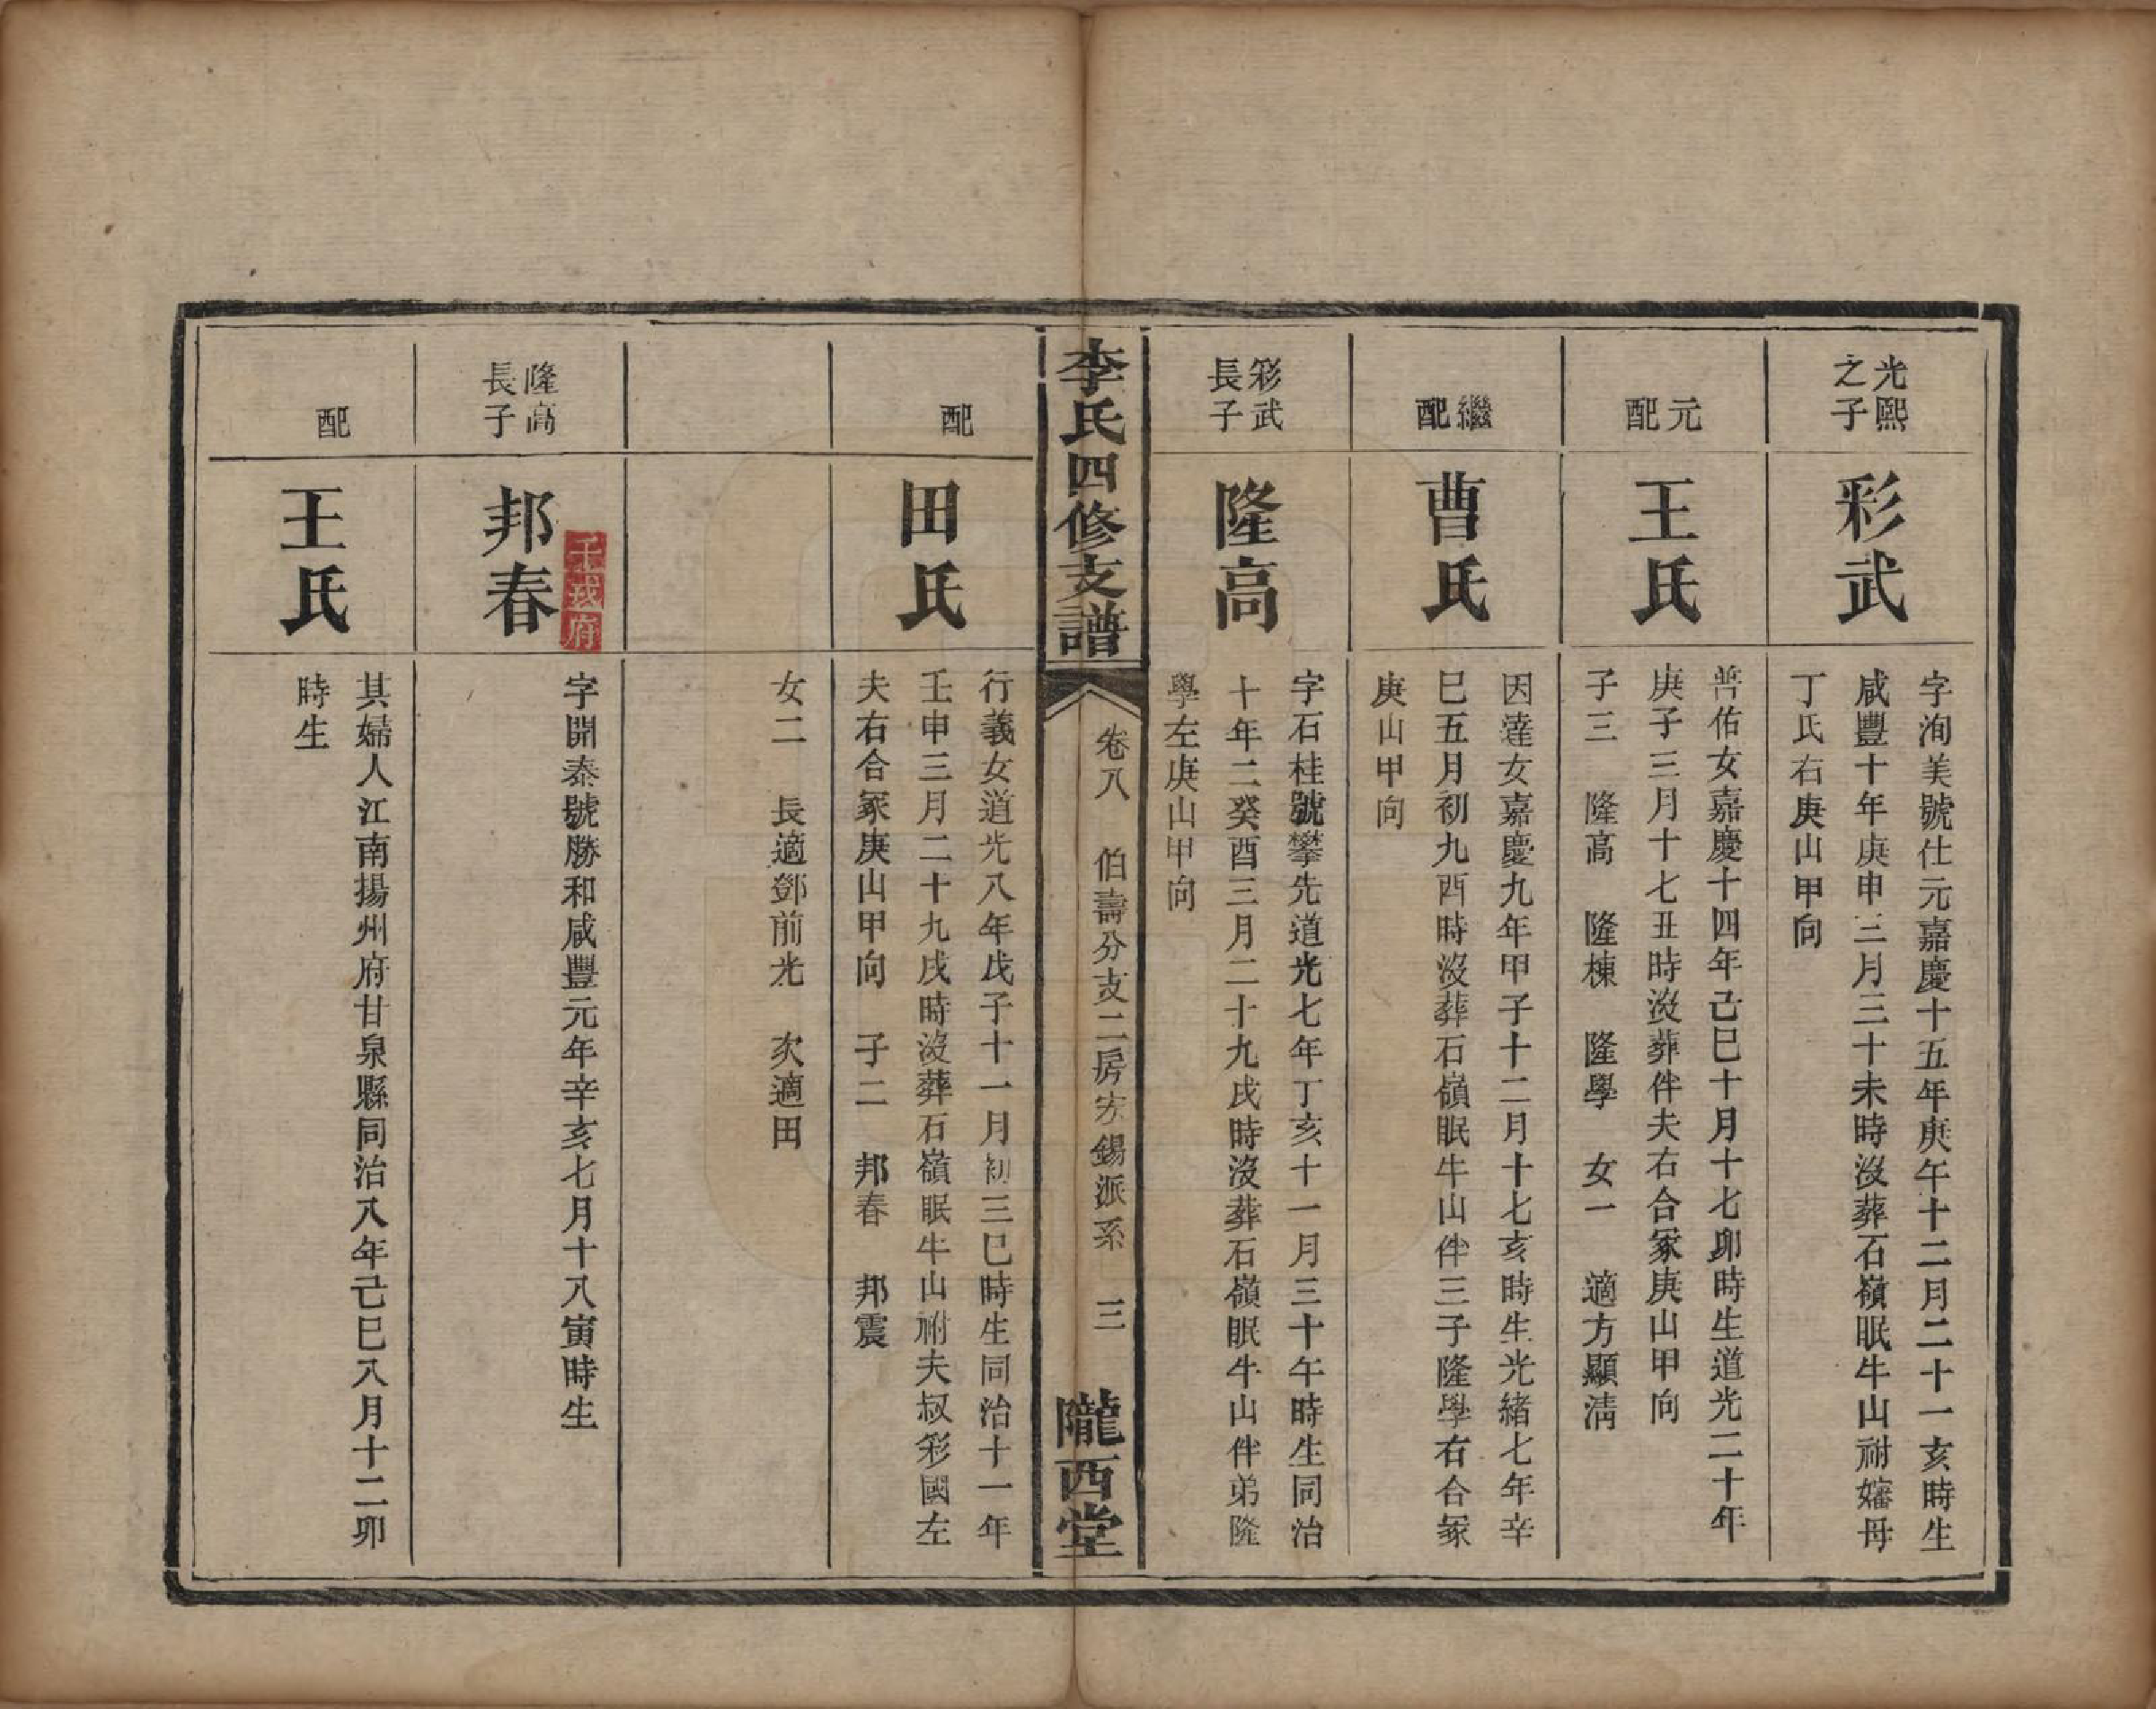 光熙
之子
彩武
字洵美號仕元嘉慶十五年庚午十二月二十一亥時生
咸豐十年庚申三月三十未時沒葬石嶺眠牛山祔嬸母
丁氏右庚山甲向
元
配
王氏
普佑女嘉慶十四年己巳十月十七卯時生道光二十年
庚子三月十七丑時沒葬伴夫右合冢庚山甲向
子三 隆高 隆棟 隆學 女一 適方顯淸
繼
配
曹氏
因達女嘉慶九年甲子十二月十七亥時生光緒七年辛
巳五月初九酉時沒葬石嶺眠牛山伴三子隆學右合冢
庚山甲向
彩武
長子
隆高
字石桂號攀先道光七年丁亥十一月三十午時生同治
十年二癸酉三月二十九戌時沒葬石嶺眠牛山伴弟隆
學左庚山甲向
李氏四修支譜
卷八 伯壽分支二房宏錫派系 三
隴西堂
配
田氏
行義女道光八年戊子十一月初三巳時生同治十一年
壬申三月二十九戌時沒葬石嶺眠牛山祔夫叔彩國左
夫右合冢庚山甲向 子二 邦春 邦震
女二 長適鄧前光 次適田
隆高
長子
邦春
壬戎府
字開泰號勝和咸豐元年辛亥七月十八寅時生
配
王氏
其婦人江南揚州府甘泉縣同治八年己巳八月十二卯
時生